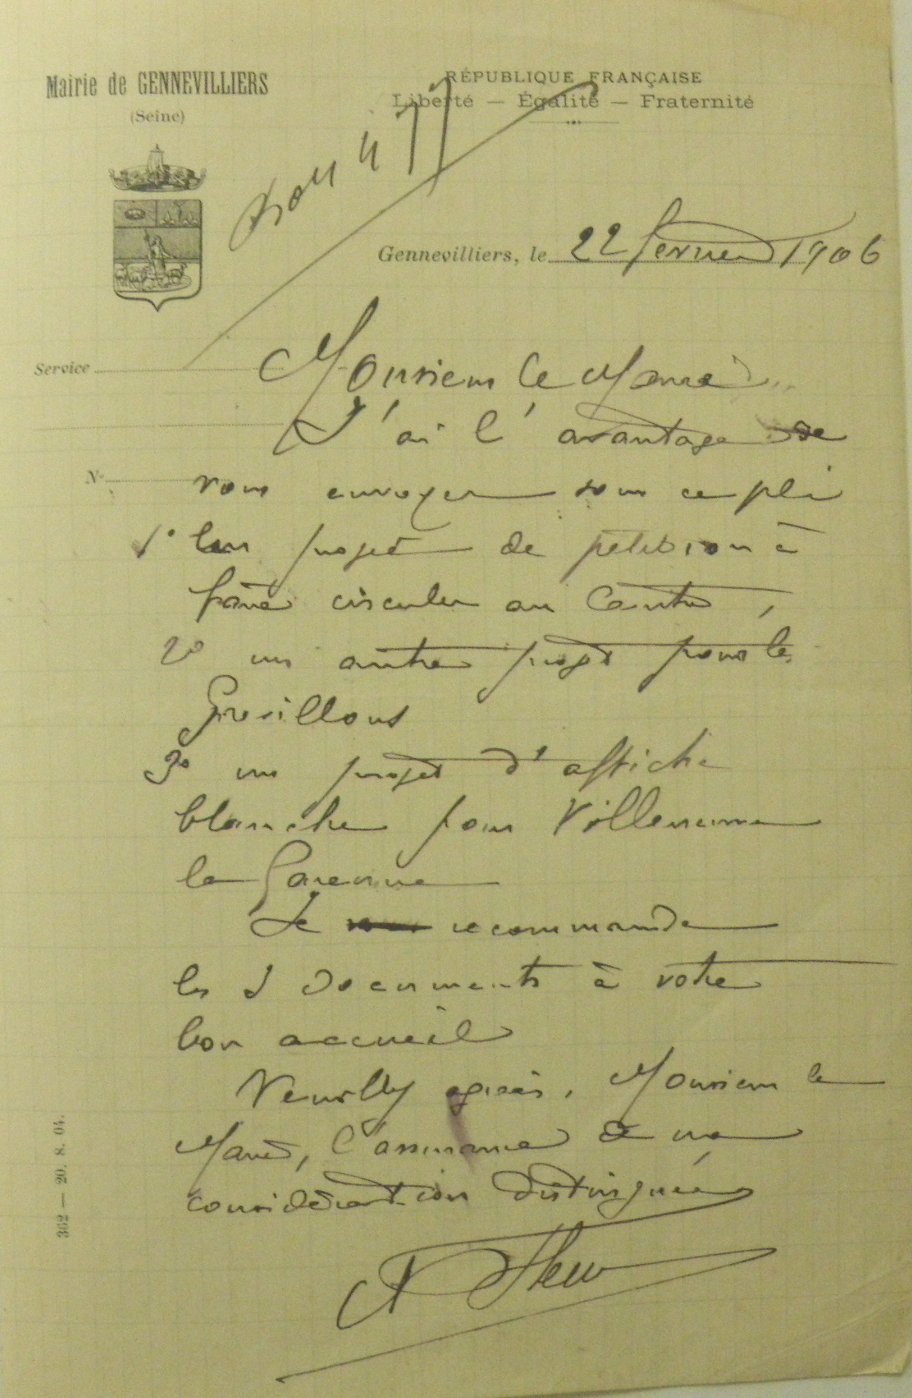 Mairie de GENNEVILLIERS
(Seine)
RÉPUBLIQUE FRANÇAISE
Liberté — Égalité — Fraternité
Gennevilliers, le 22 fevrier 1906
Service
Monsieur le Maire
N°
J'ai l'avantage de
vous envoyer sous ce pli
1° un projet de petition à
faire circuler au Centre,
2° un autre projet pour les
Gresillons
3° un projet d'affiche
blanche pour Villeneuve
la Garenne
Je recommande
les 3 documents à votre
bon accueil
Veuillez agréer, Monsieur le
Maire, l'assurance de ma
considération distinguée
362 — 20. 8. 04.